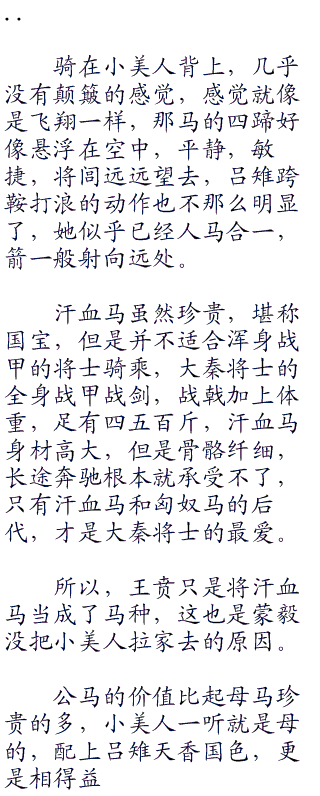 ..
骑在小美人背上，几乎
没有颠簸的感觉，感觉就像
是飞翔一样，那马的四蹄好
像悬浮在空中，平静，敏
捷，将闾远远望去，吕雉跨
鞍打浪的动作也不那么明显
了，她似乎已经人马合一，
箭一般射向远处。
汗血马虽然珍贵，堪称
国宝，但是并不适合浑身战
甲的将士骑乘，大秦将士的
全身战甲战剑，战戟加上体
重，足有四五百斤，汗血马
身材高大，但是骨骼纤细，
长途奔驰根本就承受不了，
只有汗血马和匈奴马的后
代，才是大秦将士的最爱。
所以，王贲只是将汗血
马当成了马种，这也是蒙毅
没把小美人拉家去的原因。
公马的价值比起母马珍
贵的多，小美人一听就是母
的，配上吕雉天香国色，更
是相得益